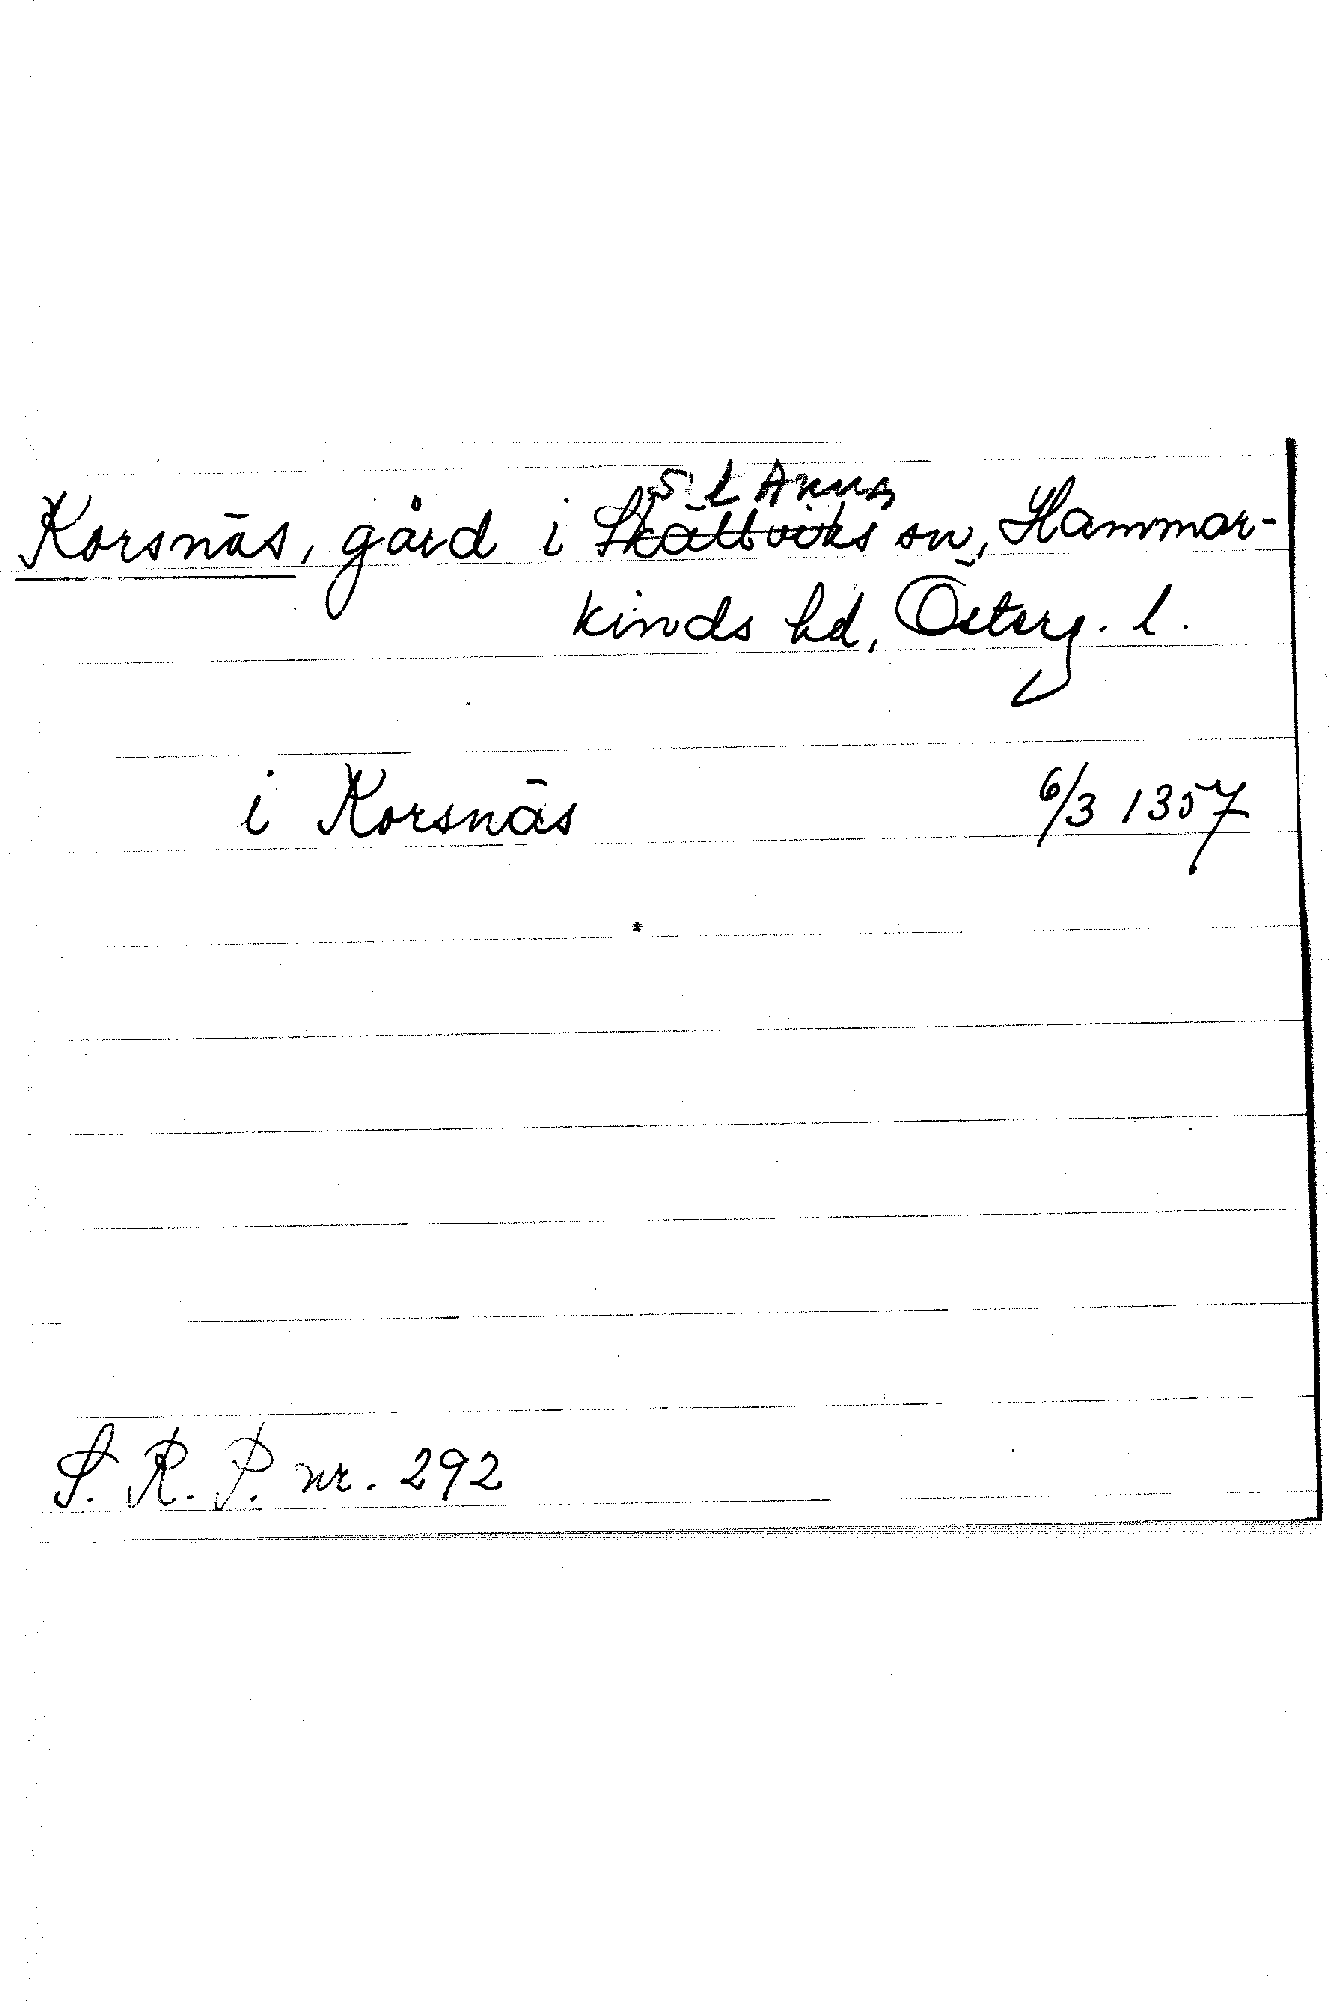 S:t Anna
Korsnäs, gård i Skällviks sn, Hammar-
kinds hd, Österg. l.
i Korsnäs 6/3 1357
S. R. P. nr. 292